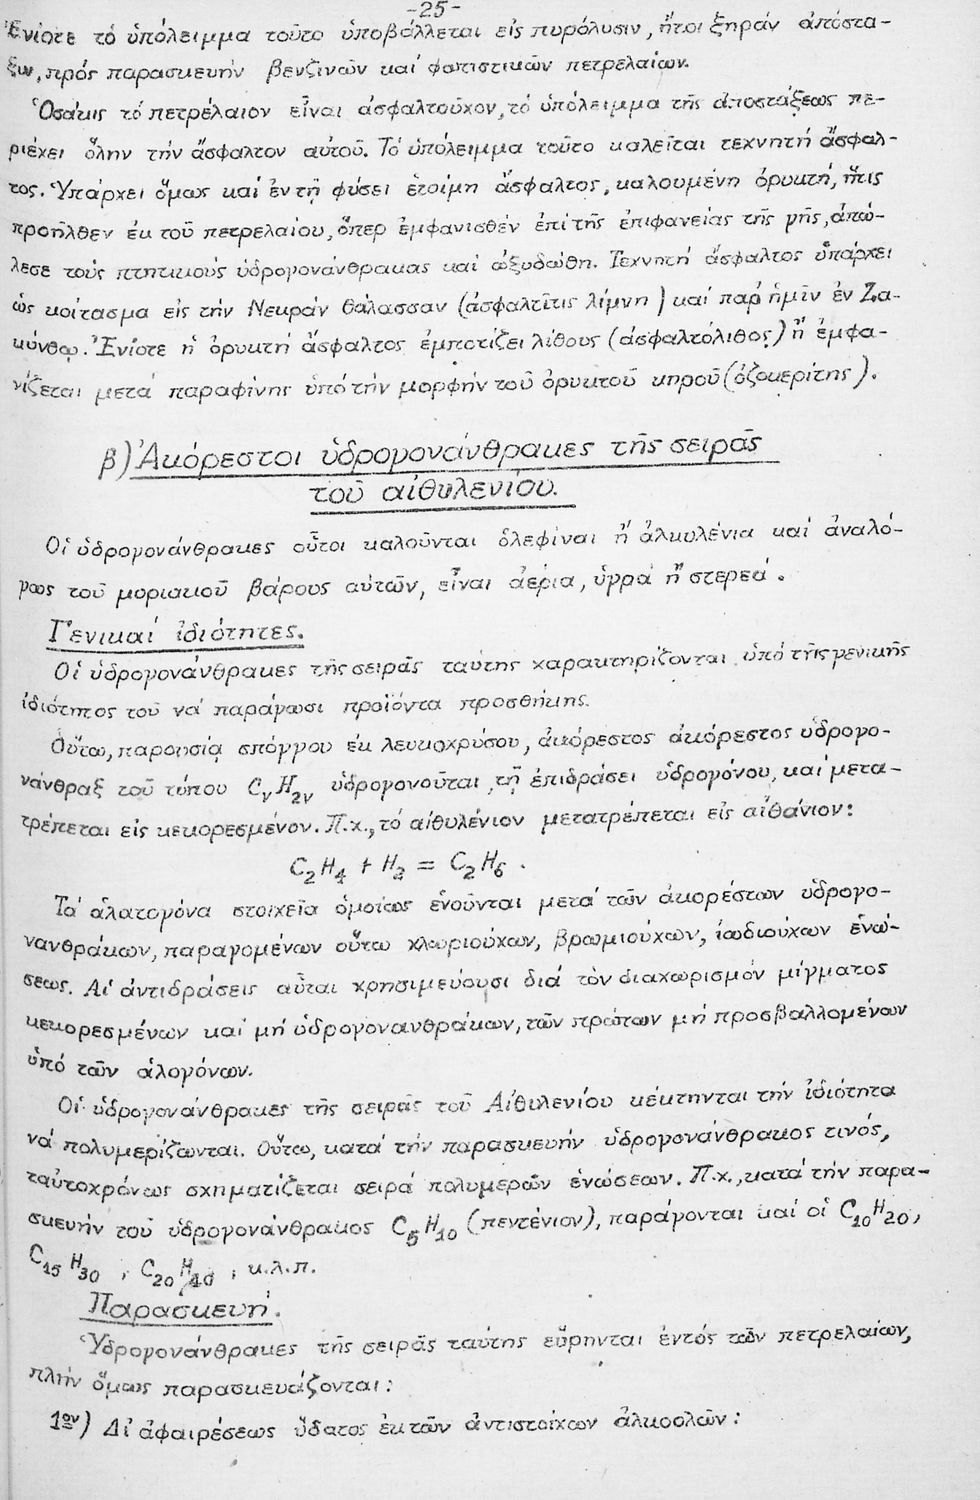 -25-
Ἐνίοτε τό ὑπόλειμμα τοῦτο ὑποβάλλεται εἰς πυρόλυσιν, ἤτοι ξηράν ἀπόστα-
ξιν, πρός παρασκευήν βενζινῶν καί φωτιστικῶν πετρελαίων.
Ὁσάκις τό πετρέλαιον εἶναι ἀσφαλτοῦχον, τό ὑπόλειμμα τῆς ἀποστάξεως πε-
ριέχει ὅλην τήν ἄσφαλτον αὐτοῦ. Τό ὑπόλειμμα τοῦτο καλεῖται τεχνητή ἄσφαλ-
τος. Ὑπάρχει ὅμως καί ἐν τῇ φύσει ἑτοίμη ἄσφαλτος, καλουμένη ὀρυκτή, ἥτις
προῆλθεν ἐκ τοῦ πετρελαίου, ὅπερ ἐμφανισθέν ἐπί τῆς ἐπιφανείας τῆς γῆς, ἀπώ-
λεσε τούς πτητικούς ὑδρογονάνθρακας καί ὠξυδώθη. Τεχνητή ἄσφαλτος ὑπάρχει
ὡς κοίτασμα εἰς τήν Νεκράν θάλασσαν (ἀσφαλτῖτις λίμνη) καί παρ' ἡμῖν ἐν Ζα-
κύνθῳ. Ἐνίοτε ἡ ὀρυκτή ἄσφαλτος ἐμποτίζει λίθους (ἀσφαλτόλιθος) ἤ ἐμφα-
νίζεται μετά παραφίνης ὑπό τήν μορφήν τοῦ ὀρυκτοῦ κηροῦ (ὀζοκερίτης).
β) Ἀκόρεστοι ὑδρογονάνθρακες τῆς σειρᾶς
τοῦ αἰθυλενίου.
Οἱ ὑδρογονάνθρακες οὗτοι καλοῦνται ὀλεφίναι ἤ ἀλκυλένια καί ἀναλό-
γως τοῦ μοριακοῦ βάρους αὐτῶν, εἶναι ἀέρια, ὑγρά ἤ στερεά.
Γενικαί ἰδιότητες.
Οἱ ὑδρογονάνθρακες τῆς σειρᾶς ταύτης χαρακτηρίζονται ὑπό τῆς γενικῆς
ἰδιότητος τοῦ νά παράγωσι προϊόντα προσθήκης.
Οὕτω, παρουσίᾳ σπόγγου ἐκ λευκοχρύσου, ἀκόρεστος ἀκόρεστος ὑδρογο-
νάνθραξ τοῦ τύπου C<sub>ν</sub>H<sub>2ν</sub> ὑδρογονοῦται, τῇ ἐπιδράσει ὑδρογόνου, καί μετα-
τρέπεται εἰς κεκορεσμένον. Π.χ., τό αἰθυλένιον μετατρέπεται εἰς αἰθάνιον:
C<sub>2</sub>H<sub>4</sub> + H<sub>2</sub> = C<sub>2</sub>H<sub>6</sub>.
Τά ἁλατογόνα στοιχεῖα ὁμοίως ἑνοῦνται μετά τῶν ἀκορέστων ὑδρογο-
νανθράκων, παραγομένων οὕτω χλωριούχων, βρωμιούχων, ἰωδιούχων ἑνώ-
σεως. Αἱ ἀντιδράσεις αὗται χρησιμεύουσι διά τὸν διαχωρισμόν μίγματος
κεκορεσμένων καί μή ὑδρογονανθράκων, τῶν πρώτων μή προσβαλλομένων
ὑπό τῶν ἁλογόνων.
Οἱ ὑδρογονάνθρακες τῆς σειρᾶς τοῦ Αἰθυλενίου κέκτηνται τήν ἰδιότητα
νά πολυμερίζωνται. Οὕτω, κατά τήν παρασκευήν ὑδρογονάνθρακος τινός,
ταὐτοχρόνως σχηματίζεται σειρά πολυμερῶν ἑνώσεων. Π.χ., κατά τήν παρα-
σκευήν τοῦ ὑδρογονάνθρακος C<sub>5</sub>H<sub>10</sub> (πεντένιον), παράγονται καί οἱ C<sub>10</sub>H<sub>20</sub>,
C<sub>15</sub>H<sub>30</sub>, C<sub>20</sub>H<sub>40</sub>, κ.λ.π.
Παρασκευή.
Ὑδρογονάνθρακες τῆς σειρᾶς ταύτης εὕρηνται ἐντός τῶν πετρελαίων,
πλήν ὅμως παρασκευάζονται:
1ον) Δι' ἀφαιρέσεως ὕδατος ἐκ τῶν ἀντιστοίχων ἀλκοολῶν: